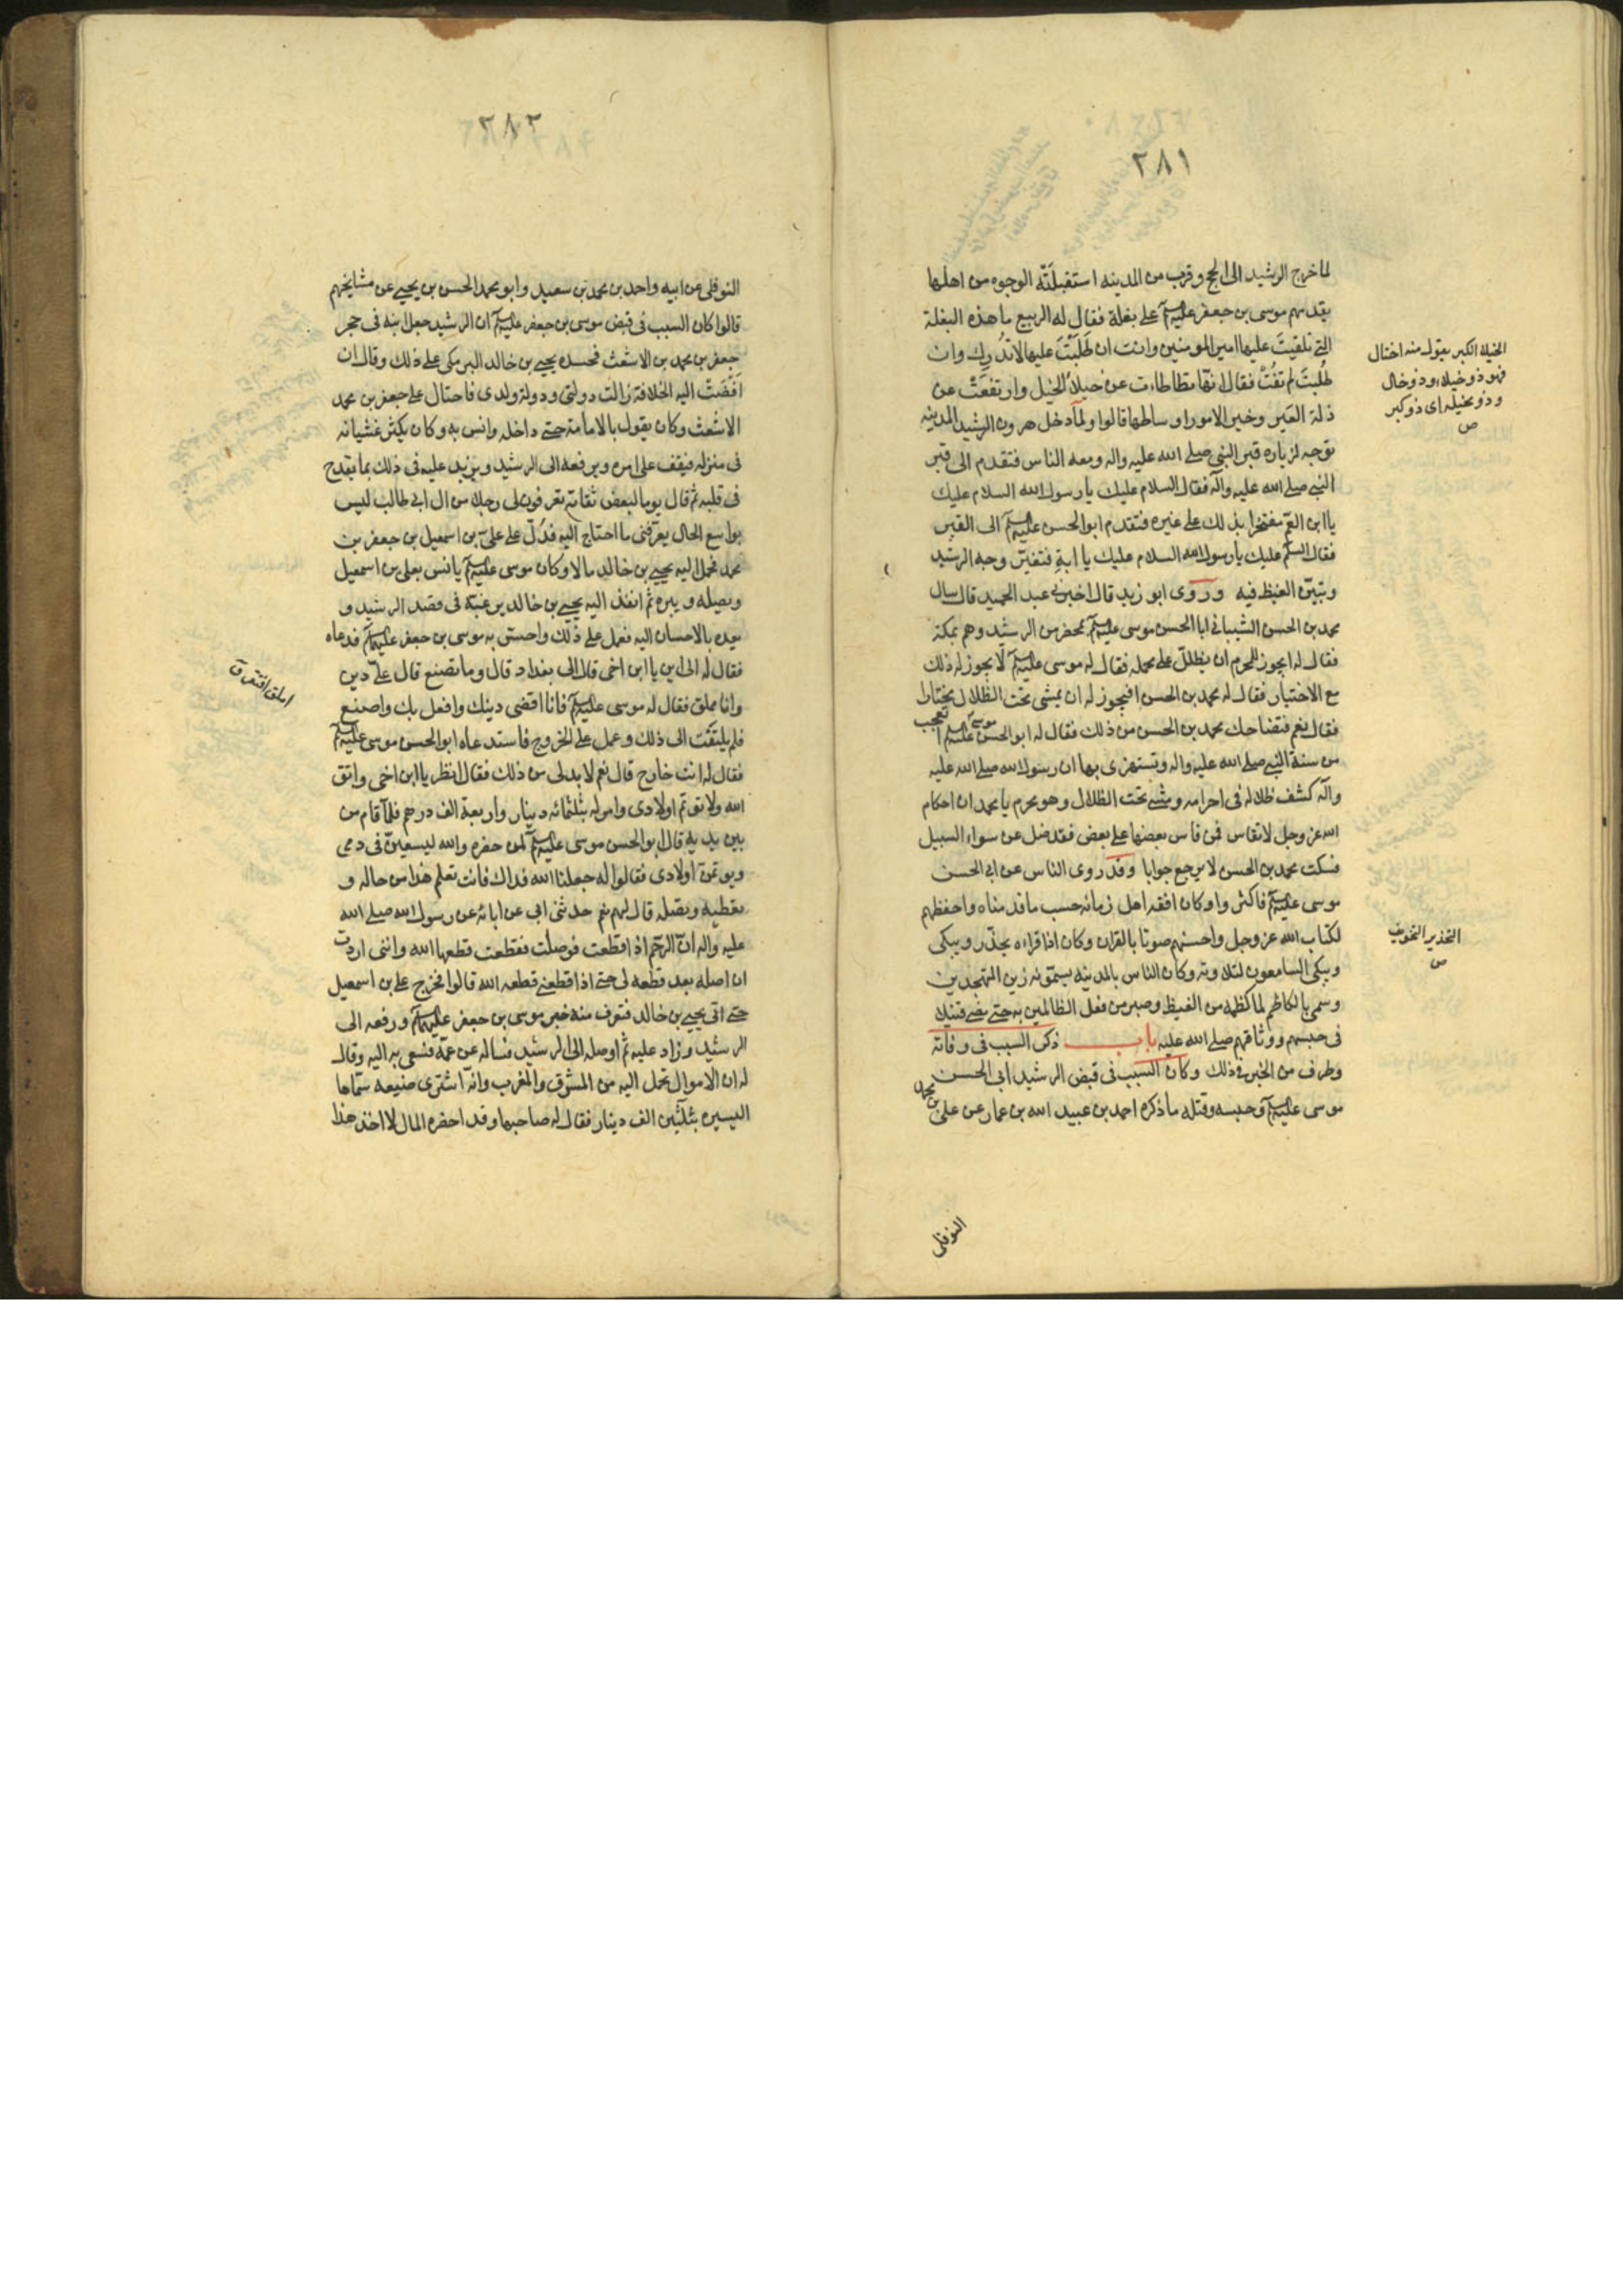 ٢٨١
لما خرج الرشيد الى الحج وقرب من المدينه استقبلَتْه الوجوه من اهلها
يقدمهم موسى بن جعفر عليه السلم على بغلة فقال له الربيع ما هذه البغلة
التي تلقيتَ عليها امير المومنين وانت ان طَلَبْتَ عليها لا تُدْرِك وان
طُلِبْتَ لم تفُتْ فقال انها تطاطات عن خيلاء الخيل وارتفعَتْ عن
ذلة العَير وخير الامور اوساطها قالوا ولما دخل هرون الرشيد المدينه
توجه لزياره قبر النبي صلى الله عليه واله ومعه الناس فتقدم الى قبر
النبي صلى الله عليه وآله فقال السلام عليك يا رسول الله السلام عليك
يا ابن العم مفتخرا بذلك على غيره فتقدم ابو الحسن عليه السلم الى القبر
فقال السلم عليك يا رسول الله السلام عليك يا ابةِ فتغيّر وجه الرشيد
وتبيّن الغيظ فيه وروى ابو زيد قال اخبرني عبد الحميد قال سال
محمد بن الحسن الشيباني ابا الحسن موسى عليه السلم بمحضر من الرشيد وهم بمكة
فقال له ايجوز للمحرم ان يظلل على محمله فقال له موسى عليه السلم لا يجوز له ذلك
مع الاختيار فقال له محمد بن الحسن افيجوز له ان يمشى تحت الظلال مختارا
فقال نعم فتضاحك محمد بن الحسن من ذلك فقال له ابو الحسن موسى عليه السلم اتعجب
من سنة النبي صلى الله عليه واله وتستهزى بها ان رسول الله صلى الله عليه
وآله كشف ظلاله فى احرامه ومشى تحت الظلال وهو محرم يا محمد ان احكام
الله عز وجل لا تقاس فمن قاس بعضها على بعض فقد ضل عن سواء السبيل
فسكت محمد بن الحسن لا يرجع جوابا وقد روى الناس عن ابى الحسن
موسى عليه السلم فاكثروا وكان افقه اهل زمانه حسب ما قدمناه واحفظهم
لكتاب الله عز وجل واحسنهم صوتا بالقران وكان اذا قراءه يحذّر ويبكى
ويبكى السامعون لتلاوته وكان الناس بالمدينه يسمّونه زين المتهجدين
وسمى بالكاظم لما كظمه من الغيظ وصبر من فعل الظالمين به حتى مضى قتيلا
فى حبسهم ووثاقهم صلى الله عليه باب ذكر السبب فى وفاته
وطرف من الخبر فى ذلك وكان السبب فى قبض الرشيد ابى الحسن
موسى عليه السلم وحبسه وقتله ما ذكره احمد بن عبيد الله بن عمار عن على بن محمد
النوفلى
الخيلا الكبر يقول منه اختال
فهو ذو خيلاء وذو خال
وذو مخيله اى ذو كبر
ص
التحذير التخويف
ص
٢٨٢
النوفلى عن ابيه واحمد بن محمد بن سعيد وابو محمد الحسن بن يحيى عن مشايخهم
قالوا كان السبب فى قبض موسى بن جعفر عليه السلم ان الرشيد جعل ابنه فى حجر
جعفر بن محمد بن الاشعث فحسده يحيى بن خالد البرمكى على ذلك وقال ان
اَفْضَتْ اليه الخلافة زالت دولتى ودولة ولدى فاحتال على جعفر بن محمد
الاشعث وكان يقول بالامامة حتى داخله وانس به وكان يكثر غشيانه
فى منزله فيقف على امره ويرفعه الى الرشيد ويزيد عليه فى ذلك بما يقدح
فى قلبه ثم قال يوما لبعض ثقاته تعرفون لى رجلا من ال ابى طالب ليس
بواسع الحال يعرّفنى ما احتاج اليه فدُلّ على علىّ بن اسمعيل بن جعفر بن
محمد فحمل اليه يحيى بن خالد مالا وكان موسى عليه السلم يانس بعلى بن اسمعيل
ويصله ويبره ثم انفذ اليه يحيى بن خالد يرغبه فى قصد الرشيد و
يعده بالاحسان اليه فعمل على ذلك واحس به موسى بن جعفر عليهم السلم فدعاه
فقال له الى اين يا ابن اخى قال الى بغداد قال وما تصنع قال علىّ دين
وانا مملق فقال له موسى عليه السلم فانا اقضى دينك وافعل بك واصنع
فلم يلتفت الى ذلك وعمل على الخروج فاستدعاه ابو الحسن موسى عليه السلم
فقال له انت خارج قال نعم لا بد لى من ذلك فقال انظر يا ابن اخى واتق
الله ولا توتم اولادى وامر له بثلثمائه دينار واربعة الف درهم فلما قام من
بين يديه قال ابو الحسن موسى عليه السلم لمن حضره والله ليسعينّ فى دمى
ويوتمن اولادى فقالوا له جعلنا الله فداك فانت تعلم هذا من حاله و
تعطيه وتصله قال لهم نعم حدثنى ابى عن ابائه عن رسول الله صلى الله
عليه واله انّ الرحم اذا قطعت فوصلت فقطعت قطعها الله وانى اردت
ان اصله بعد قطعه لى حتى اذا قطعنى قطعه الله قالوا فخرج على بن اسمعيل
حتى اتى يحيى بن خالد فتعرف منه خبر موسى بن جعفر عليهم السلم ورفعه الى
الرشيد وزاد عليه ثم اوصله الى الرشيد فساله عن عمّه فسعى به اليه وقال
له ان الاموال تحمل اليه من المشرق والمغرب وانه اشترى ضيعه سمّاها
اليسيره بثلثين الف دينار فقال له صاحبها وقد احضره المال لا اخذ هذا
املق افتقر ق